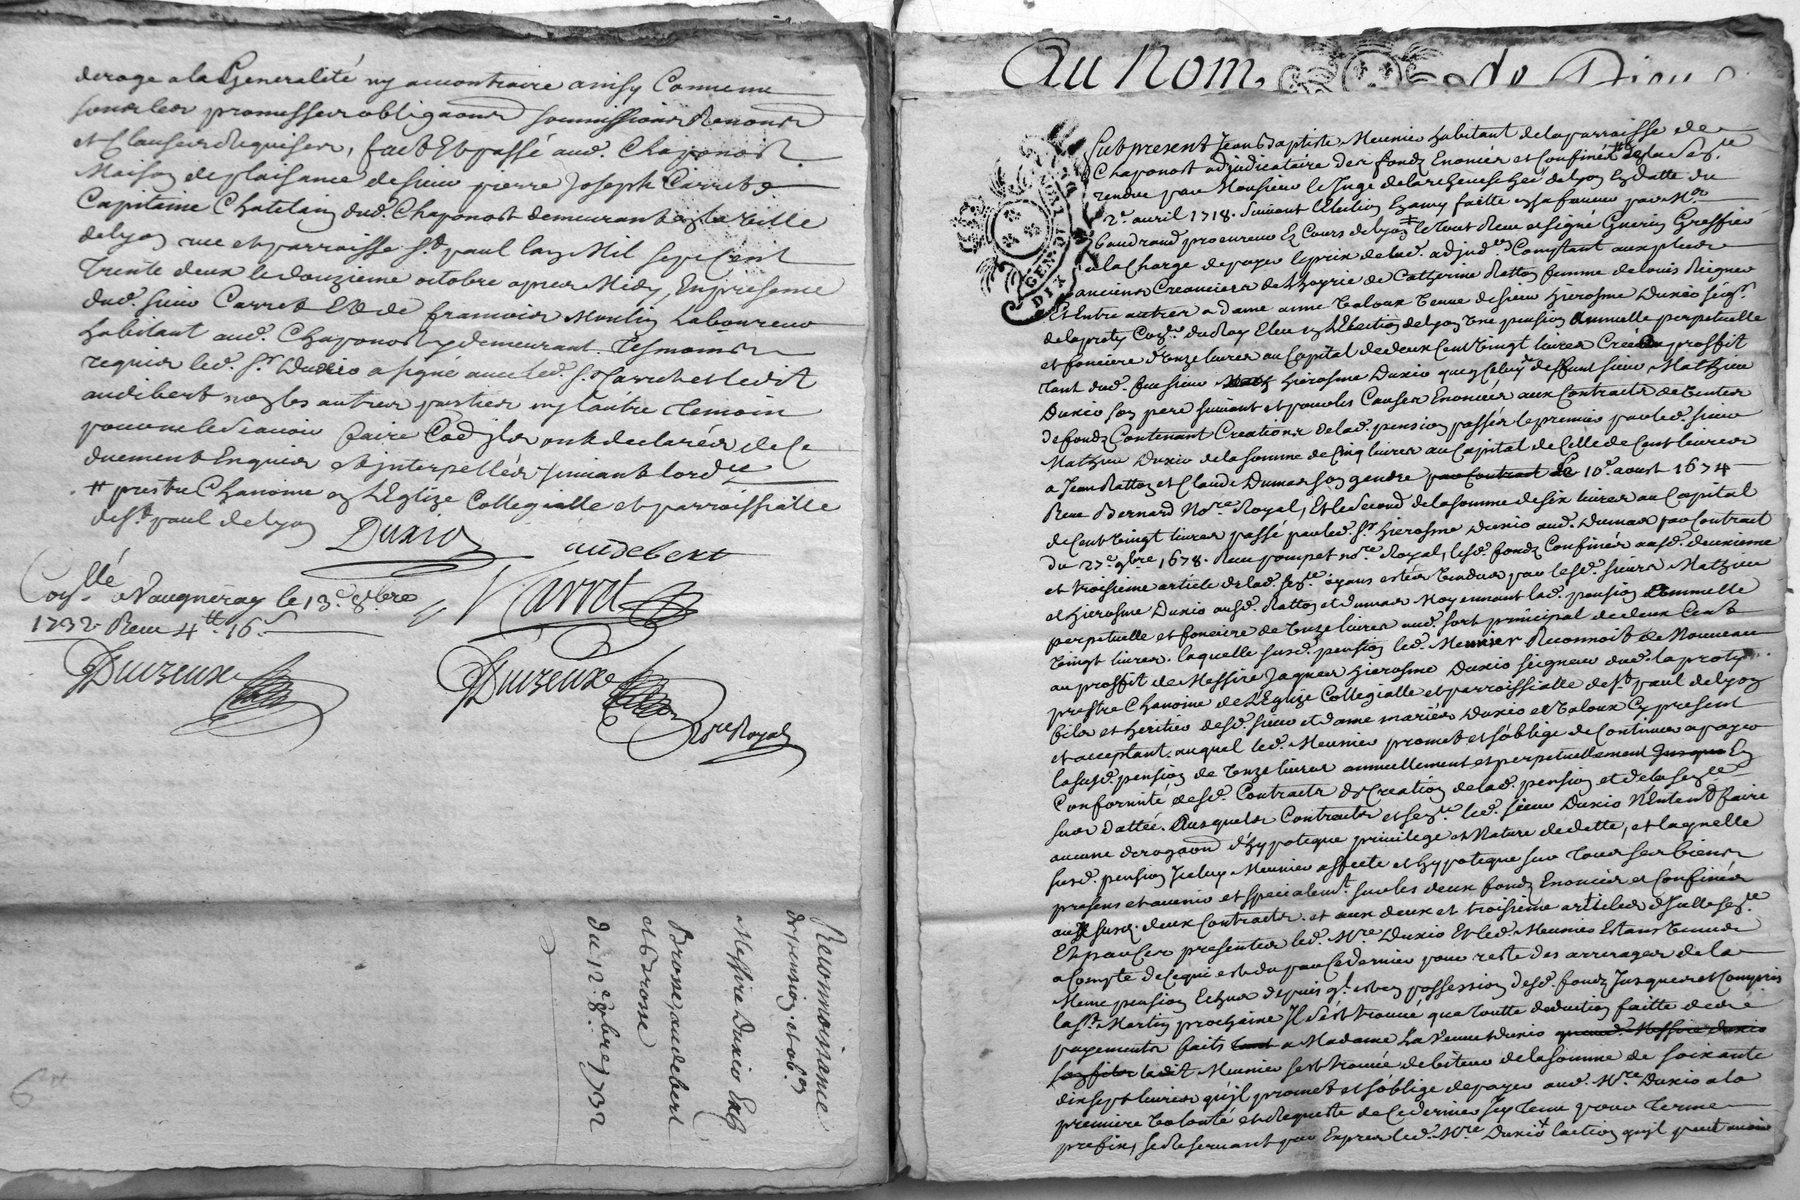 deroge a la Generalité ny au contraire ainsy Convenu
sous les promesses obligaons soumissions Renons
et Clauses Requises, fait Et passé aud. Chaponost
Maison de plaisance de sieur pierre Joseph Carret
Capitaine Chatelain dud. Chaponost demeurant en la ville
de Lyon rue et parroisse St. paul Lan Mil sept Cent
Trente deux le douzieme octobre apres Midy, En presence
dud. sieur Carret Et de francois Moulin Laboureur
habitant aud. Chaponost y demeurant Tesmoins
requis led. Sr. Duxio a signé avec led. Sr. Carret et ledit
audebert non les autres parties ny l'autre Temoin
pour ne le scavoir faire Co~ils ont declarés de Ce
duement Enquis et interpellés suivant lordce
# prestre Chanoine en L'Eglize Collegialle et parroissialle
de St. paul de Lyon
Duxio audebert
Collé a Vaugneray le 13e. 8bre
1732 Receu 4tt. 16s
Carret
Duizeux
Duizeux
Nore Royal
Reconnoissance
de pension et oblon
Messire Duxio Et
Brosse, audebert
et Brosse
du 12e. 8bre 1732
6tt
Au Nom de Dieu
GEN. DE LYON
DIX
Fut present Jean Baptiste Meunier habitant de la parroisse de
Chaponost adjudicataire des fonds Enoncés et Confinés en la Sence
rendue par Monsieur le Juge de l'archeveché de Lyon En datte du
2e. avril 1718. Suivant L'élection Enamy faitte en sa faveur par Mr.
baudrand procureur Es Cours de Lyon le tout Receu et signé Guerin Greffier
a la Charge de payer le prix de lad. adjudon Consistant aux plus
anciens Creanciers de Catherine Ratton femme de Louis Reignier
Et Entre autres a dame anne Valoux Veuve de sieur hierosme Duxio seigr.
de la proty Coner. du Roy Eleu en L'Election de Lyon Une pension Annuelle perpetuelle
et fonciere d'onze livres au Capital de deux Cent Vingt livres Creée au proffit
Tant dud. feu sieur hierosme Duxio que de Celuy deffunt sieur Mathieu
Duxio son pere suivant et pour les Causes Enoncées aux Contracts de Ventes
de fonds Contenant Creations de lad. pension passés le premier par led. sieur
Mathieu Duxio de la somme de Cinq livres au Capital de Celle de Cent livres
a Jean Ratton et Claude Dumas son gendre par Contract du 10e. aoust 1674
Receu Bernard Nore. Royal, Et le second de la somme de six livres au Capital
de Cent Vingt livres passé par led. Sr. hierosme Duxio aud. Dumas par Contract
du 27e. 9bre 1678. Receu pompet nore. Royal, lesd. fonds Confinés ausd. deuxieme
et troisieme article de lad. Sence. ayans estés Vendus par lesd. sieurs Mathieu
et hierosme Duxio ausd. Ratton et dumas Moyennant lad. pension Annuelle
perpetuelle et fonciere de Onze livres aud. sort principal de deux Cent
Vingt livres. laquelle susd. pension led. Meunier Reconnoit de Nouveau
au proffit de Messire Jaques hierosme Duxio seigneur dud. la proty
prestre Chanoine de L'Eglize Collegialle et parroissialle de St. paul de Lyon
fils et heritier desd. sieur et dame mariés Duxio et Valoux Cy present
et acceptant. auquel led. Meunier promet et s'oblige de Continuer a payer
la susd. pension de Onze livres annuellement et perpetuellement Jusques En
Conformité desd. Contracts de Creation de lad. pension et de la Sence
sus dattée. Ausquels Contracts et Sence. led. sieur Duxio N'Entend faire
aucune derogaon d'hypoteque privilege et Nature de dette, et laquelle
susd. pension Icelluy Meunier affecte et hypoteque sur Tous ses biens
presens et avenir et specialemt. sur les deux fonds Enoncés et Confinés
aux susd. deux Contracts. et aux deux et troisieme articles d'Icelle Sence
Et par Ces presentes led. Mre Duxio Et led. Meunier Estans Venus
a Compte de Ce qui est du par Ce dernier pour reste des arrerages de la
Meme pension Echus depuis ql. est en possession desd. fonds Jusques et Compris
la St. Martin prochaine Il s'est trouvé que toutte deduction faitte des
payements faits a Madame La Veuve Duxio quand. Messire Duxio
son fils ledit Meunier s'est trouvé debiteur de la somme de soixante
dix sept livres qu'il promet et s'oblige de payer aud. Mre Duxio a la
premiere Volonté et Requeste de Ce dernier Icy Tenu pour Terme
prefix, se Reservant par Exprès led. Mre Duxio l'action qu'il peut avoir